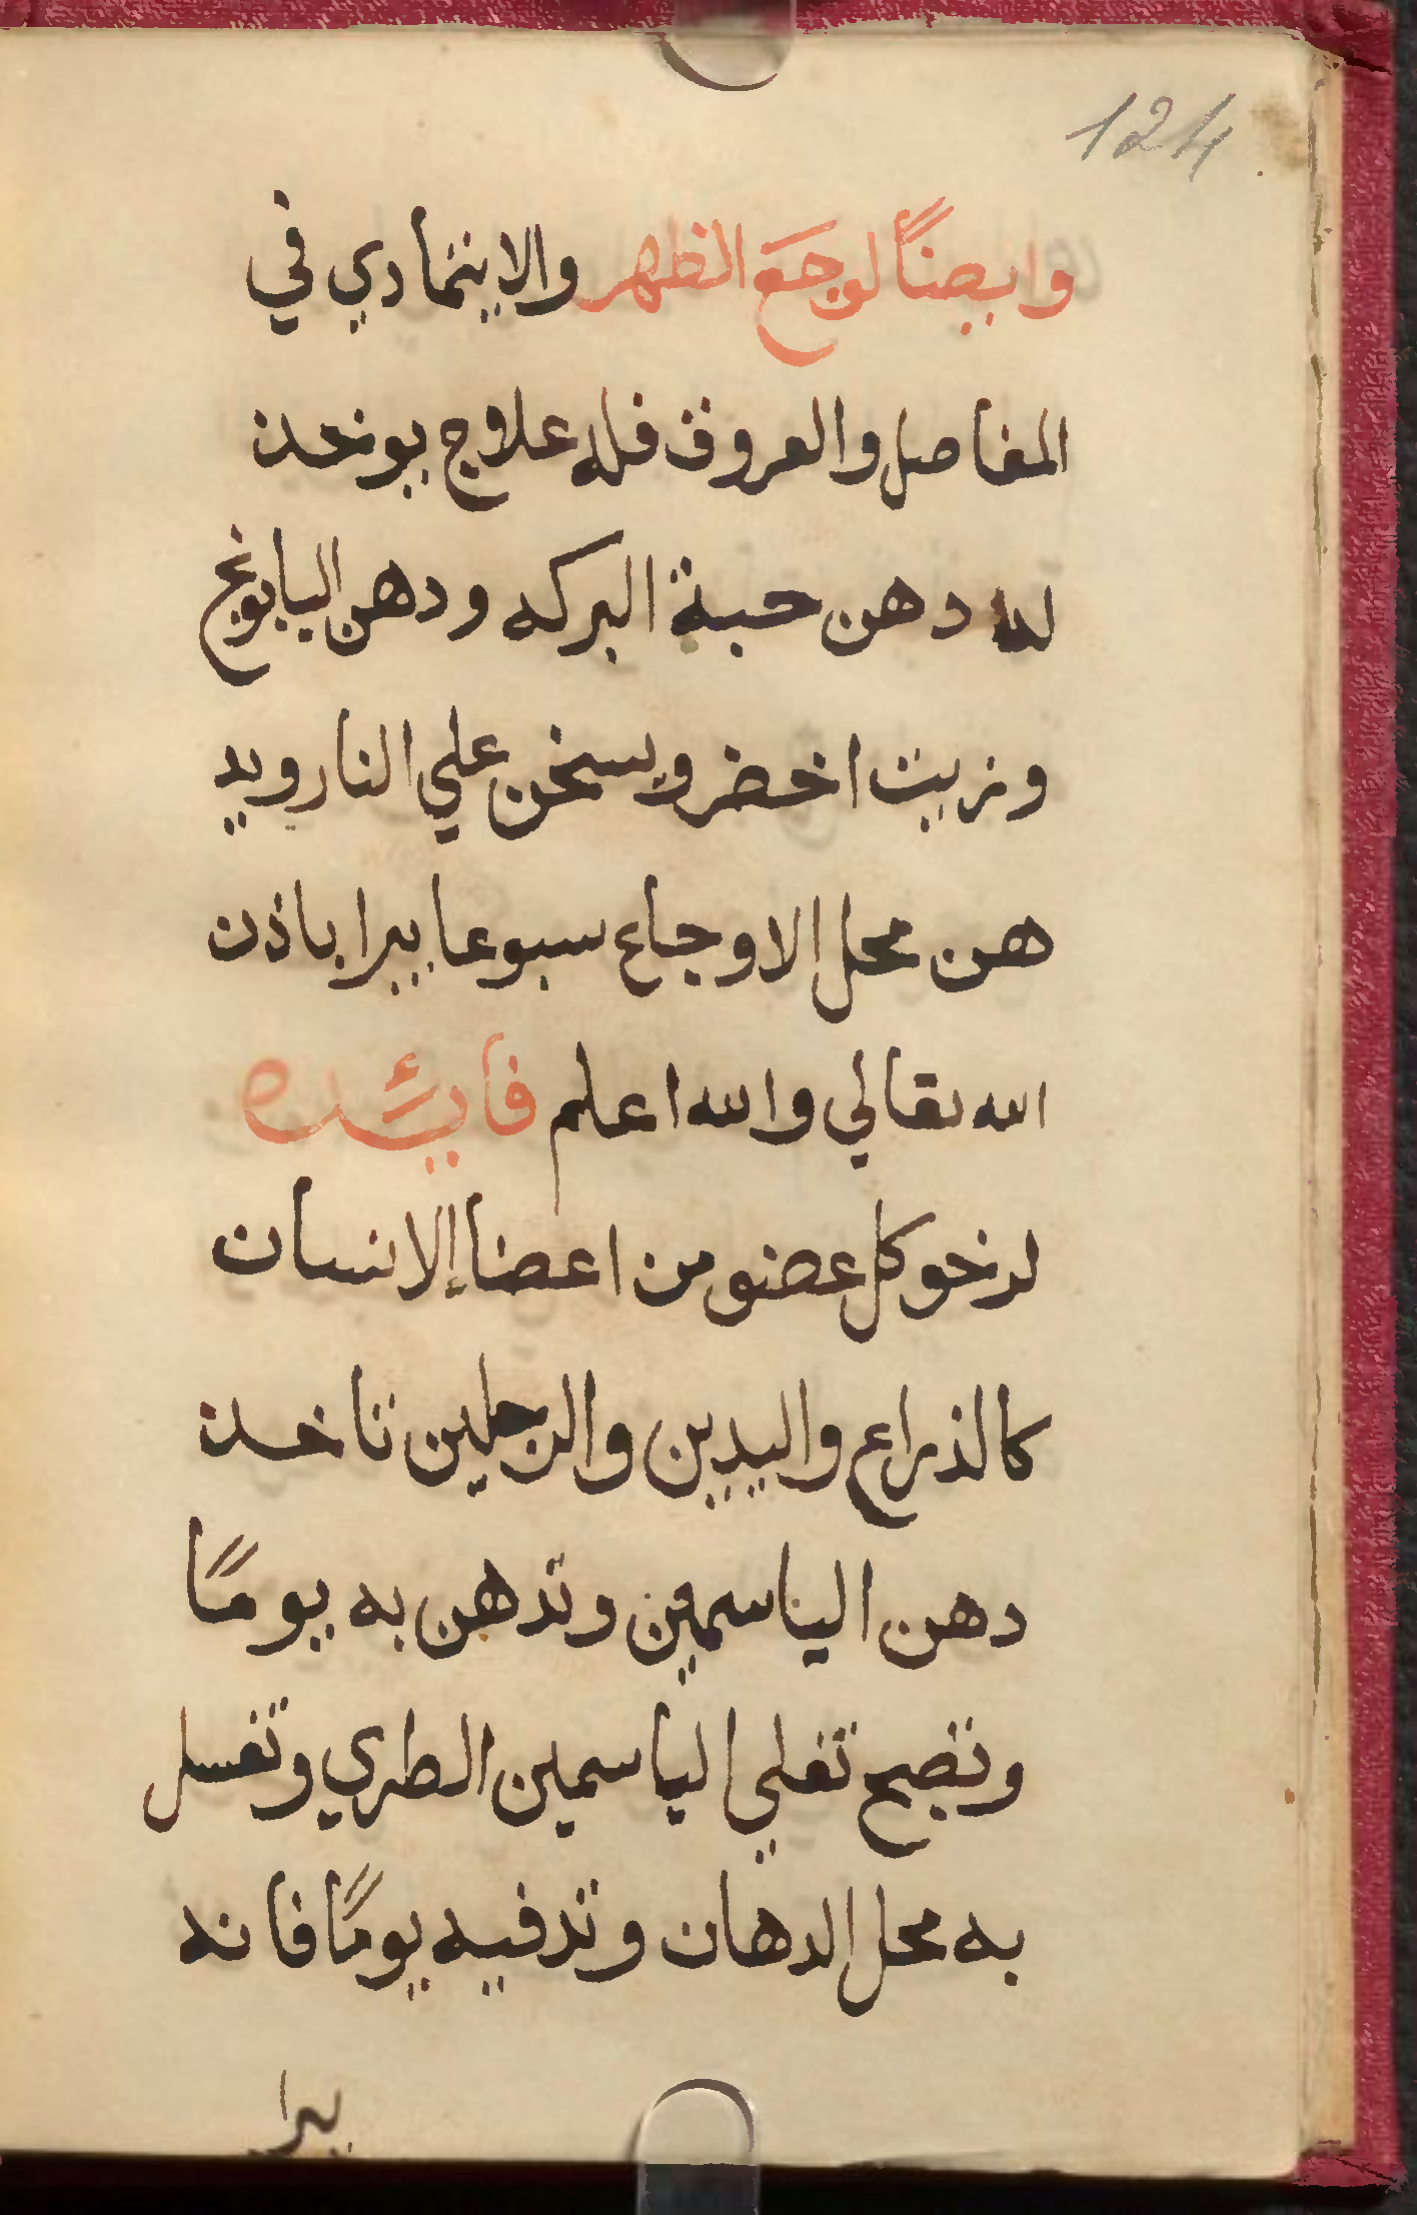 124
وايضًا لوجَع الظهر والاينمادي في
المفاصل والعروق فله علاج يوخذ
له دهن حبة البركه ودهن اليابونج
وزيت اخضر ويسخن علي النار ويد
هن محل الاوجاع سبوعا يبرا باذن
الله تعالي والله اعلم فايئده
لرخو كل عضو من اعضا الانسان
كالذراع واليدين والرجلين تاخذ
دهن الياسمين وتدهن به يومًا
وتصبح تغلي الياسمين الطري وتغسل
به محل الدهان وتدفيه يومًا فانه
يبرا